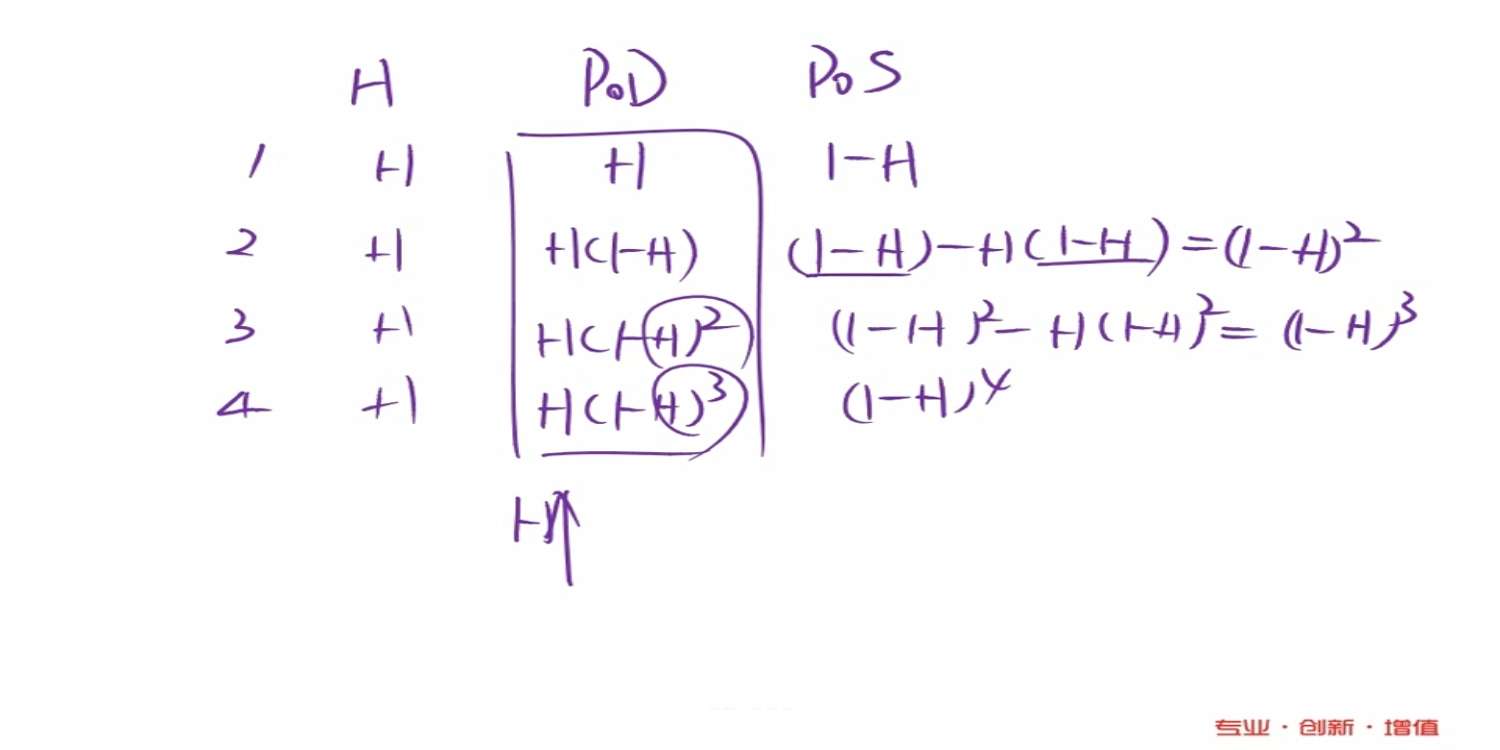 H PoD PoS
1 H H 1-H
2 H H(1-H) (1-H)-H(1-H)=(1-H)²
3 H H(1-H)² (1-H)²-H(1-H)²=(1-H)³
4 H H(1-H)³ (1-H)⁴
H↑
专业·创新·增值